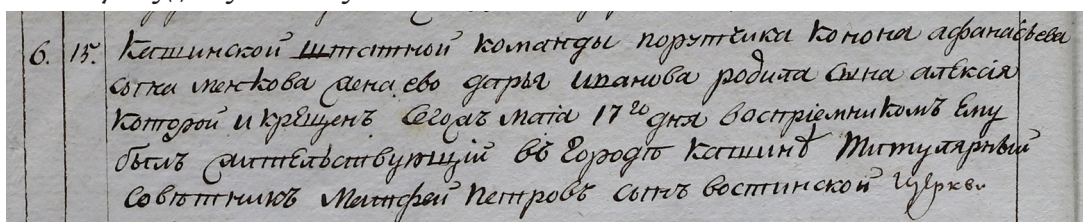 6. 15. Кашинской штатной команды порутчика Конона афанасьева
сына менкова жена ево дарья иванова родила сына алексія
которой и крещенъ сегожъ маіа 17го дня востріемникомъ Ему
былъ жительствующій въ Городѣ Кашинѣ титулярный
совѣтникъ Матфей Петровъ сынъ востинской Церкви